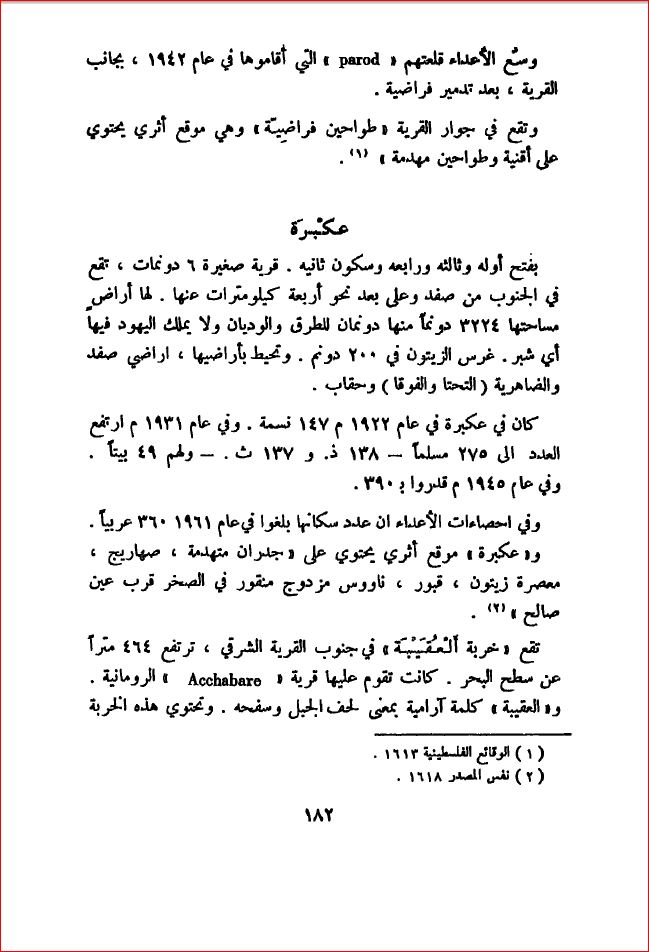 وسّع الأعداء قلعتهم « parod » التي أقاموها في عام ١٩٤٢ ، بجانب
القرية ، بعد تدمير فراضية .
وتقع في جوار القرية « طواحين فراضِيّة » وهي موقع أثري يحتوي
على أقنية وطواحين مهدمة » (١) .
عكْبَرَة
بفتح أوله وثالثه ورابعه وسكون ثانيه . قرية صغيرة ٦ دونمات ، تقع
في الجنوب من صفد وعلى بعد نحو أربعة كيلومترات عنها . لها أراضٍ
مساحتها ٣٢٢٤ دونماً منها دونمان للطرق والوديان ولا يملك اليهود فيها
أي شبر . غرس الزيتون في ٢٠٠ دونم . وتحيط بأراضيها ، اراضي صفد
والضاهرية ( التحتا والفوقا ) وحقاب .
كان في عكبرة في عام ١٩٢٢ م ١٤٧ نسمة . وفي عام ١٩٣١ م ارتفع
العدد الى ٢٧٥ مسلماً – ١٣٨ ذ. و ١٣٧ ث . – ولهم ٤٩ بيتاً .
وفي عام ١٩٤٥ م قدروا بـ ٣٩٠ .
وفي احصاءات الأعداء ان عدد سكانها بلغوا في عام ١٩٦١ ٣٦٠ عربياً .
و« عكبرة » موقع أثري يحتوي على « جدران متهدمة ، صهاريج ،
معصرة زيتون ، قبور ، ناووس مزدوج منقور في الصخر قرب عين
صالح » (٢) .
تقع « خربة ألْعُقَيْبَة » في جنوب القرية الشرقي ، ترتفع ٤٦٤ متراً
عن سطح البحر . كانت تقوم عليها قرية « Acchabare » الرومانية .
و« العقيبة » كلمة آرامية بمعنى لحف الجبل وسفحه . وتحتوي هذه الخربة
( ١ ) الوقائع الفلسطينية ١٦١٣ .
( ٢ ) نفس المصدر ١٦١٨ .
١٨٢